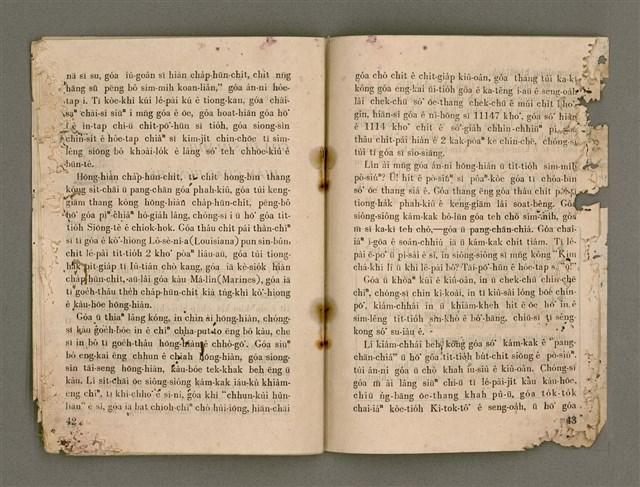 nā sī su, góa iû-goân sī hiàn cha̍p-hūn-chi̍t, chi̍t nn̄g
hāng sū pēng bô sím-mih koan-liân,” góa án-ni hôe-
tap i. Tī kòe-khì kúi lé-pài kú ê tiong-kan, góa chāi-
saⁿ chāi-sì siūⁿ i mn̄g góa ê ōe, góa hoat-hiān góa hō͘
I ê in-tap chí-ū chi̍t-pō͘-hūn sī tio̍h, góa siong-sìn
chin-si̍t ê hôe-tap chiaⁿ sī kim-ji̍t chin-chōe tī sim-
lêng siōng bô khoài-lo̍k ê lâng só͘ teh chhōe-kiû ê
būn-tê.
Hông-hiàn cha̍p-hūn-chi̍t, tī chi̍t hong-bīn thang
kóng si̍t-chāi ū pang-chān góa phah-kiû, góa túi keng-
giām thang kóng hông-hiàn cha̍p-hūn-chi̍t, pēng-bô
hō͘ góa piⁿ-chiâⁿ hó-gia̍h lâng, chóng-sī i ū hō͘ góa tit-
tio̍h Siōng-tè ê chiok-hok. Góa thâu chi̍t pái thàn-chîⁿ
sī tī góa ê kò͘-hiong Lō͘-sè-ni-a (Louisiana) pun sin-bûn,
chi̍t lé-pài tit-tio̍h 2 kho͘ pòaⁿ liáu-āu, góa túi tiong-
ha̍k pit-gia̍p tī Iû-tiân chò kang, góa iā kè-sio̍k hiàn
cha̍p-hūn-chi̍t, āu-lâi góa kàu Má-lìn (Marines), góa iā
tī goe̍h-thâu the̍h cha̍p-hūn-chi̍t kià tńg-khì kò͘-hiong
ê kàu-hōe hông-hiàn.
Góa ū thiaⁿ lâng kóng, in chin ài hông-hiàn, chóng-
sī kàu goe̍h-bóe in ê chîⁿ chha-put-to éng bô kàu, che
sī in bô tī goe̍h-thâu hông-hiàn ê chhò-gō͘. Góa siūⁿ
bô eng-kai ēng chhun ê chiah hông-hiàn, góa siong-
sìn tāi-seng hông-hiàn, kàu-bóe tek-khak beh ēng ū
kàu. Lí si̍t-chāi òe siông-siông kám-kak iáu-kú khiàm-
ēng chîⁿ, tī khí-chho͘ ê sî-ni, góa khì “chhun-kúi hūn-
hiàn” ê sî, góa iā bat chioh-chîⁿ chò hùi-iōng, hiān-chāi
42
góa chò chi̍t ê chit-gia̍p kiû-oân, góa thang túi ka-kī
kóng góa eng-kai ūi-tio̍h góa ê ka-têng í-āu ê seng-oa̍h
lâi chek-chū só͘ ōe-thang chek-chū ê múi chi̍t kho͘
gîn, hiān-sî góa ê nî-hōng sī 11147 kho͘, góa só͘ hiàn
ê 1114 kho͘ chi̍t ê só͘-giah chhin-chhiūⁿ pí
thâu chi̍t-pái hiàn ê 2 kak-pòaⁿ ke chin-chē, chóng-sī
túi tī góa sī sio-siāng.
Lín āi mn̄g góa án-ni hông-hiàn ū tit-tio̍h sím-mih
pò-siúⁿ? Ū! hit ê pò-siúⁿ sī pôaⁿ-kòe góa tī chóa-bīn
só͘ ōe thang siá ê. Góa thang ēng góa thâu chi̍t pái tī
tiong-ha̍k phah-kiû ê keng-giām lâi soat-bêng. Góa
siông-siông kám-kak bô-lūn góa teh chò sím-mih, góa
m̄ sī ka-kī teh chò,—góa ū pang-chān-chiá. Góa chai-
iáⁿ i-góa ê soân-chhiú iā ū kám-kak chi̍t tiám. Tī lé-
pài ē-po͘ ū pí-sài ê sî, in siông-siông sī mn̄g kóng “Kim
chá-khí lí ū khì lé-pài bô? Tāi-pō͘-hūn ê hôe-tap sī “Ū.”
Góa ū khòaⁿ kúi ê kiû-oân, in ū chek-chū chin-chē
chîⁿ, chóng-sī chin kī-koài, in tī kiû-sài lóng bóe chin-
pō͘, in kiám-chhái in ū khiàm-kheh hit ê ōe hō͘ in ê
sim-lêng tit-tio̍h sín-khò ê bô͘-hāng, chiū-sī tī sêng-
kong só͘ su-iàu ê.
Lí kiám-chhái beh kóng góa só͘ kám-kak ê “pang-
chān-chiá” ū hō͘ góa tit-tio̍h bu̍t-chit siōng ê pò-siúⁿ.
túi án-ni góa ū chò khah iu-siù ê kiû-oân. Chóng-sī
góa m̄ ài lâng siūⁿ chí-ū tī lé-pài-ji̍t kàu kàu-hōe,
chiū n̄g-bāng ōe-thang khah pù-ū, góa to̍k-to̍k
chai-iáⁿ kòe-tio̍h Ki-tok-tô͘ ê seng-oa̍h, ū hō͘ góa
43